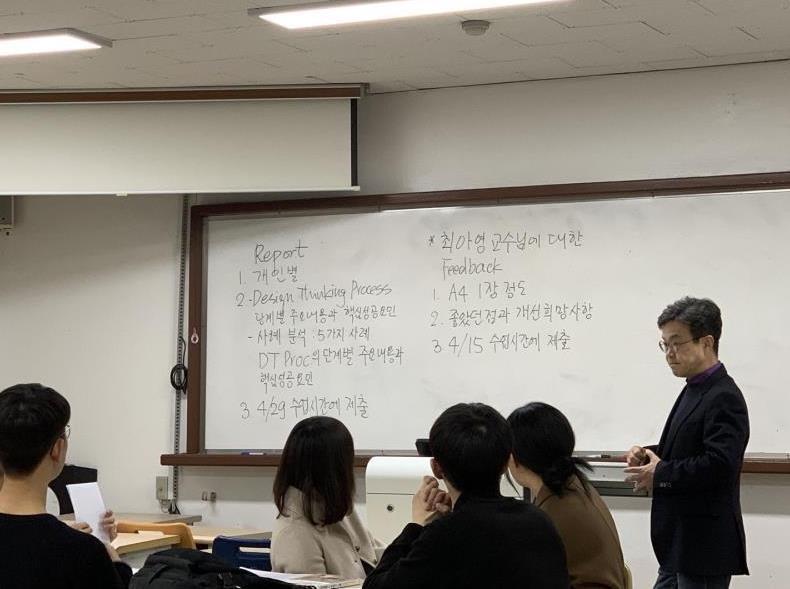 Report
1. 개인별
2. -Design Thinking Process
단계별 주요내용과 핵심성공요인
- 사례 분석 : 5가지 사례
DT Proc의 단계별 주요내용과
핵심성공요인
3 4/29 수업시간에 제출
* 최아영 교수님에 대한
Feedback
1. A4 1장 정도
2. 좋았던점과 개선희망사항
3 4/15 수업시간에 제출